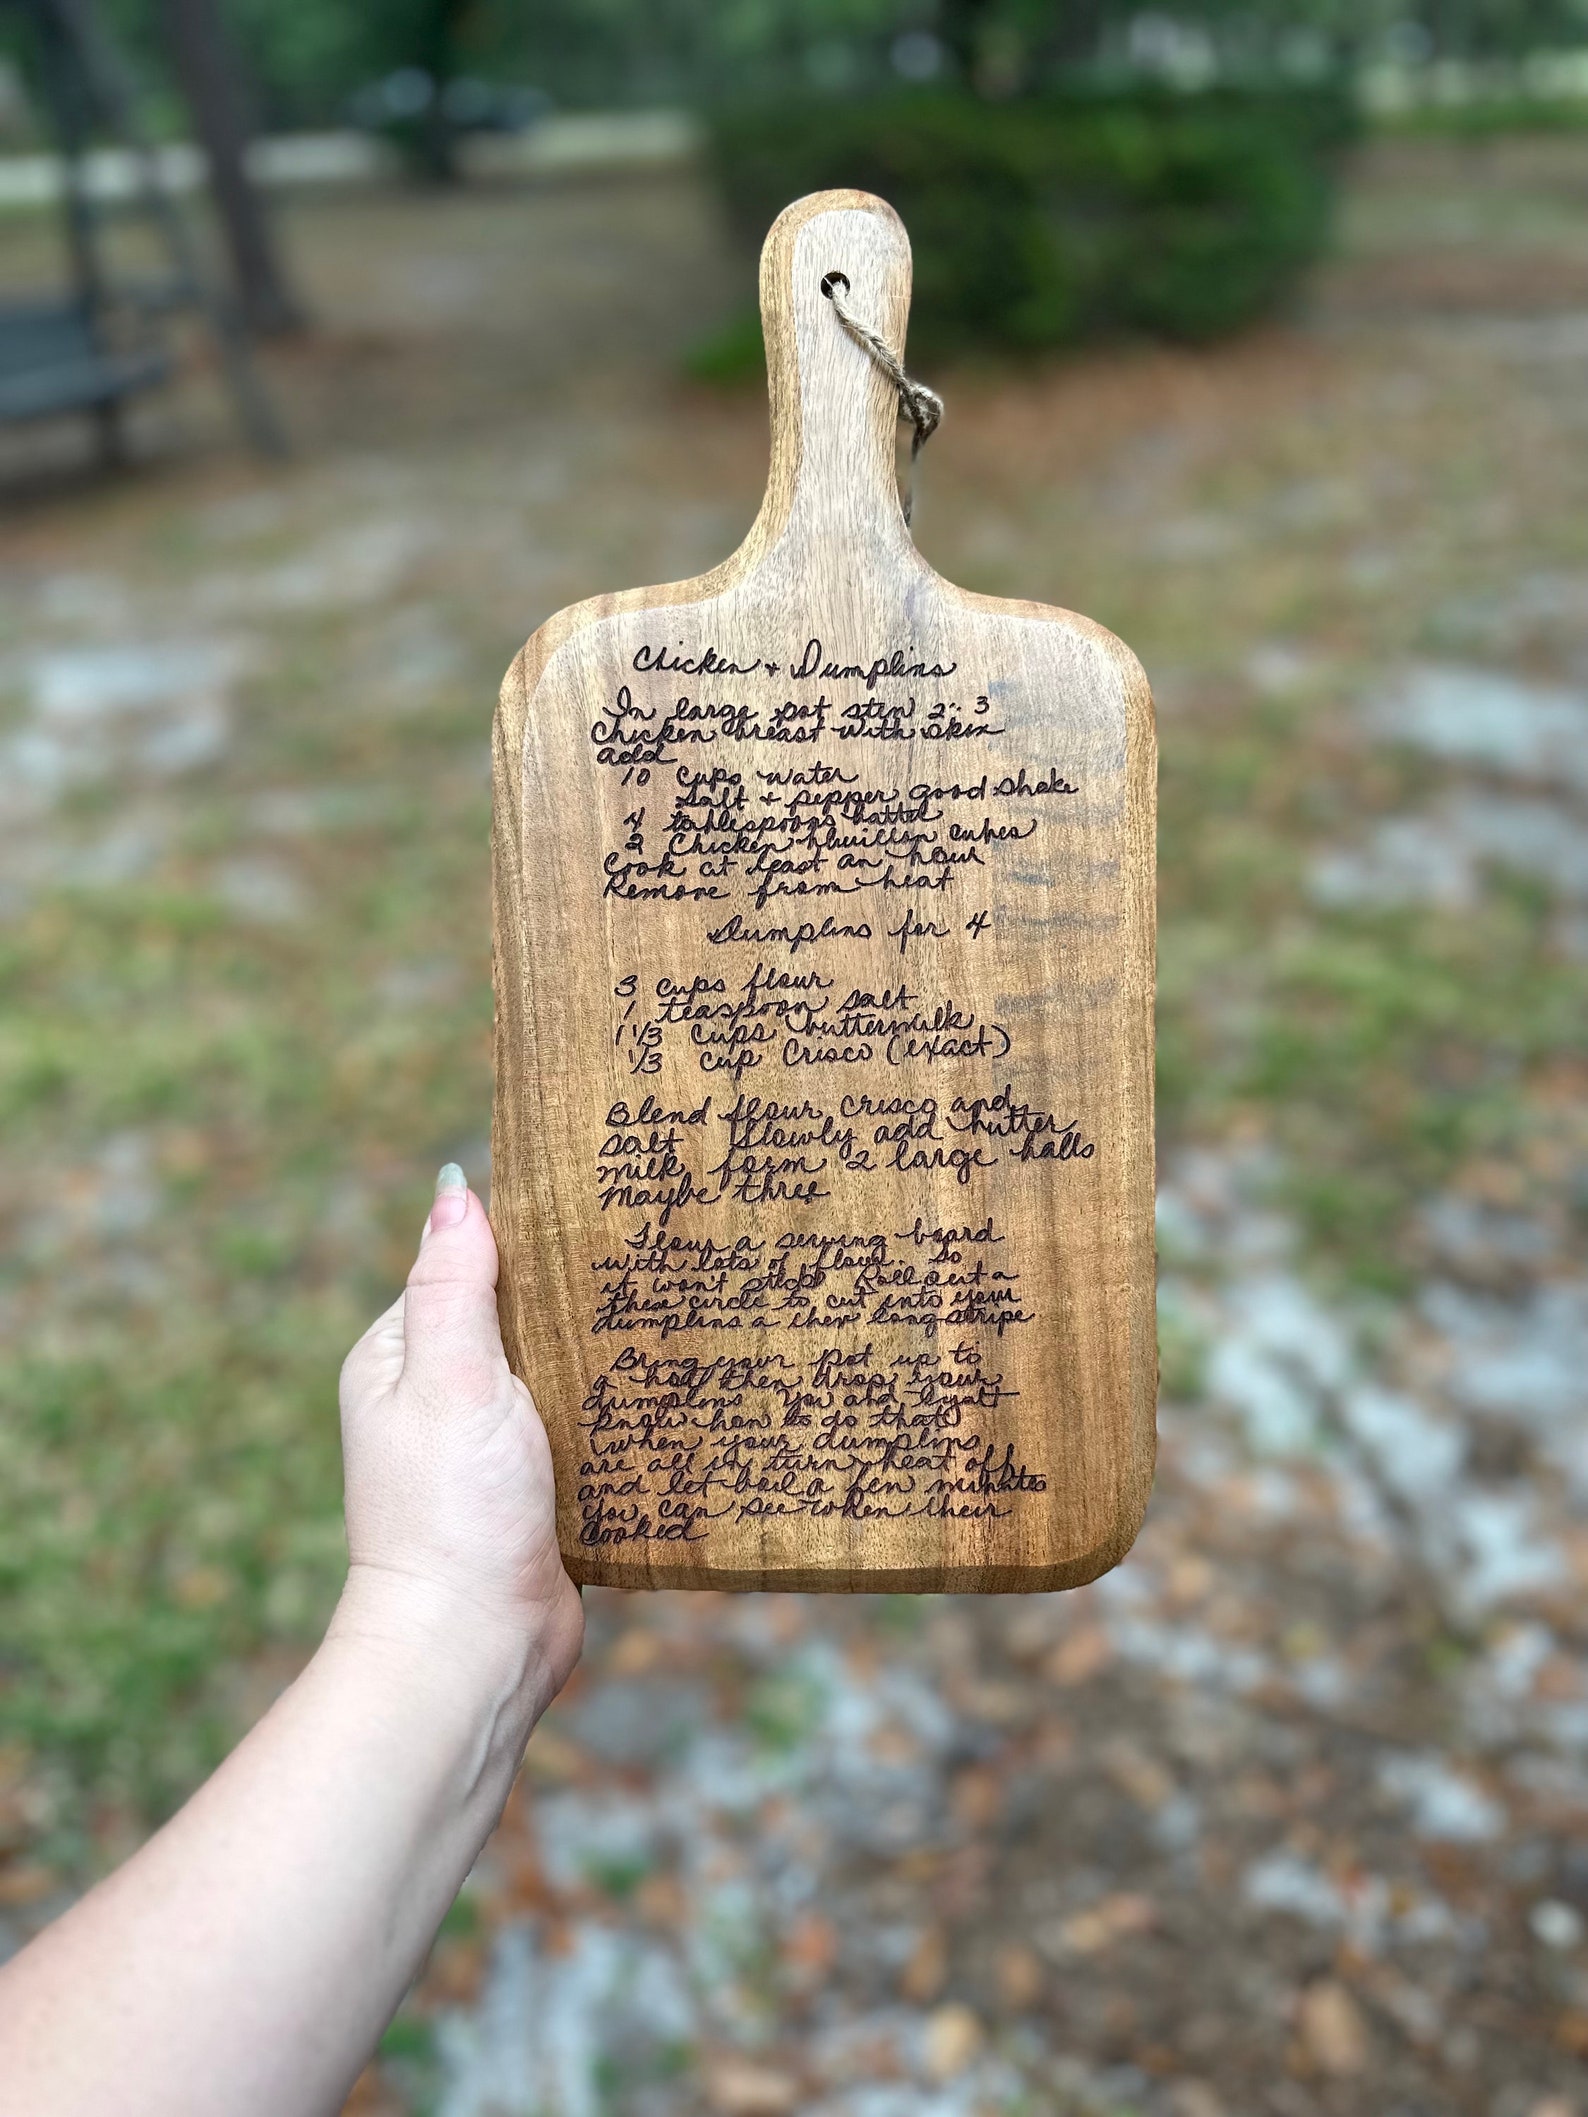 Chicken + Dumplins
In large pot stew 2-3
Chicken breast with skin
add
10 cups water
Salt + pepper good shake
4 tablespoons butter
2 Chicken bouillon cubes
Cook at least an hour
Remove from heat
Dumplins for 4
3 cups flour
1 teaspoon salt
1 1/3 cups buttermilk
1/3 cup Crisco (exact)
Blend flour Crisco and
salt Slowly add butter
milk form 2 large balls
maybe three
Flour a serving board
with lots of flour. so
it won't stick Roll out a
these circle to cut into your
dumplins a long stripe
Bring your pot up to
a boil then drop your
dumplins You and
know how to do that
when your dumplins
are all in turn heat off
and let boil a few minutes
You can see when their
cooked